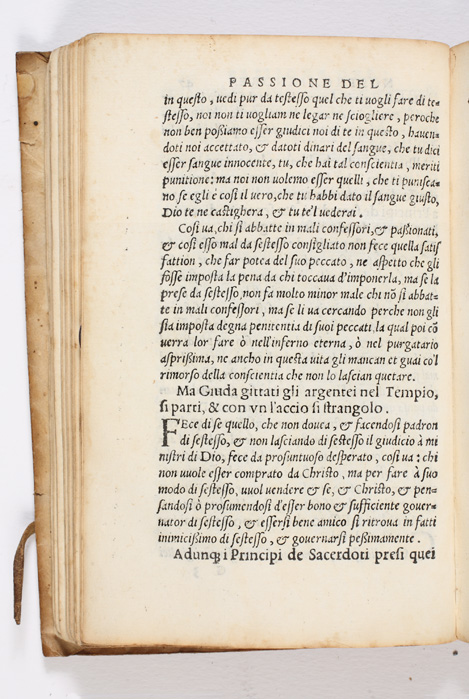 PASSIONE DEL
in questo, uedi pur da testesso quel che ti uogli fare di te-
stesso, noi non ti uogliam ne legar ne sciogliere, peroche
non ben possiamo esser giudici noi di te in questo, hauen-
doti noi accettato, & datoti dinari del sangue, che tu dici
esser sangue innocente, tu, che hai tal conscientia, meriti
punitione; ma noi non uolemo esser quelli, che ti punisca-
no se egli è così il uero, che tu habbi dato il sangue giusto,
Dio te ne castighera, & tu te'l uederai.
Cosi ua, chi si abbatte in mali confessori, & passionati,
& così esso mal da sestesso consigliato non fece quella satis
fattion, che far potea del suo peccato, ne aspetto che gli
fosse imposta la pena da chi toccaua d'imponerla, ma se la
prese da sestesso, non fa molto minor male chi nō si abbat-
te in mali confessori, ma se li ua cercando perche non gli
sia imposta degna penitentia di suoi peccati, la qual poi cō
uerra lor fare ò nell'inferno eterna, ò nel purgatario
asprissima, ne ancho in questa uita gli mancan et guai co'l
rimorso della conscientia che non lo lascian quetare.
Ma Giuda gittati gli argentei nel Tempio,
si parti, & con vn l'accio si strangolo.
FEce di se quello, che non douea, & facendosi padron
di sestesso, & non lasciando di sestesso il giudicio à mi
nistri di Dio, fece da prosuntuoso desperato, cosi ua: chi
non uuole esser comprato da Christo, ma per fare à suo
modo di sestesso, uuol vendere & se, & Christo, & pen-
sandosi ò prosumendosi d'esser bono & sufficiente gouer-
nator di sestesso, & essersi bene amico si ritroua in fatti
inimicissimo di sestesso, & gouernarsi pessimamente.
Adunq; i Principi de Sacerdoti presi quei